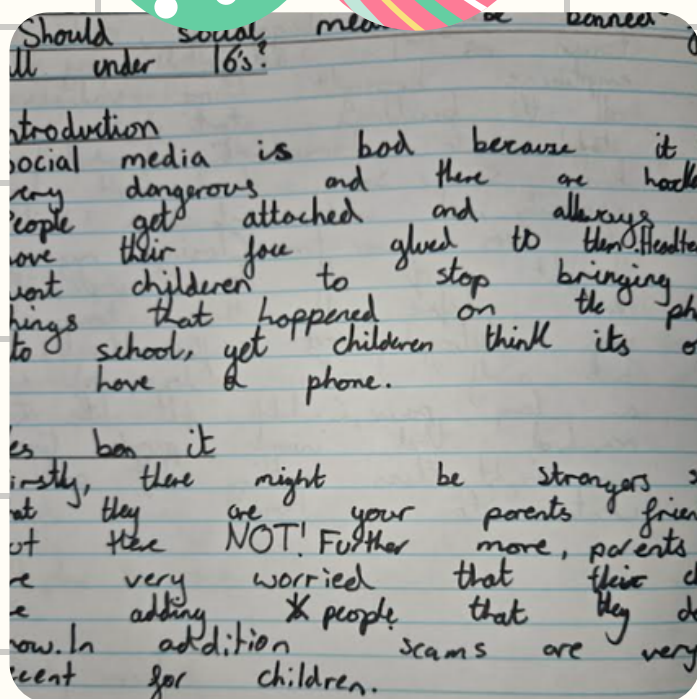 Should social be banned
ll under 16's?
ntroduction
ocial media is bad because it
ery dangerous and there are hack
eople get attached and allways
ave their face glued to them.Headte
want childeren to stop bringing
hings that happened on the ph
to school, yet childeren think its o
have a phone.
es ban it
irstly, there might be strangers s
at they are your parents frien
ut there NOT! Further more, parents
re very worried that their c
e adding people that they do
now.In addition scams are very
ecent for children.